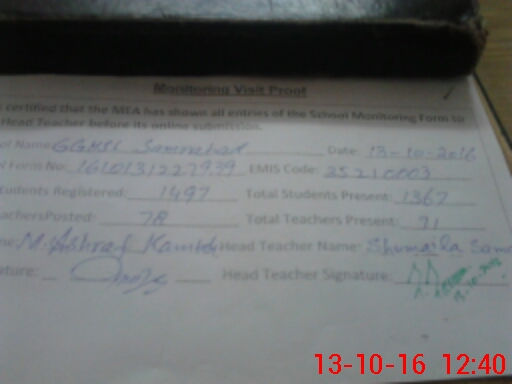 Monitoring Visit Proof
certified that the MEA has shown all entries of the School Monitoring Form to
Head Teacher before its online submission.
Name GGHSS Date: 13-10-2016
Form No: EMIS Code: 35210003
tudents Registered: 1497 Total Students Present: 1367
achersPosted: 78 Total Teachers Present: 71
M. Ashraf Head Teacher Name: Shumaila
ature: Head Teacher Signature:
13-10-16 12:40